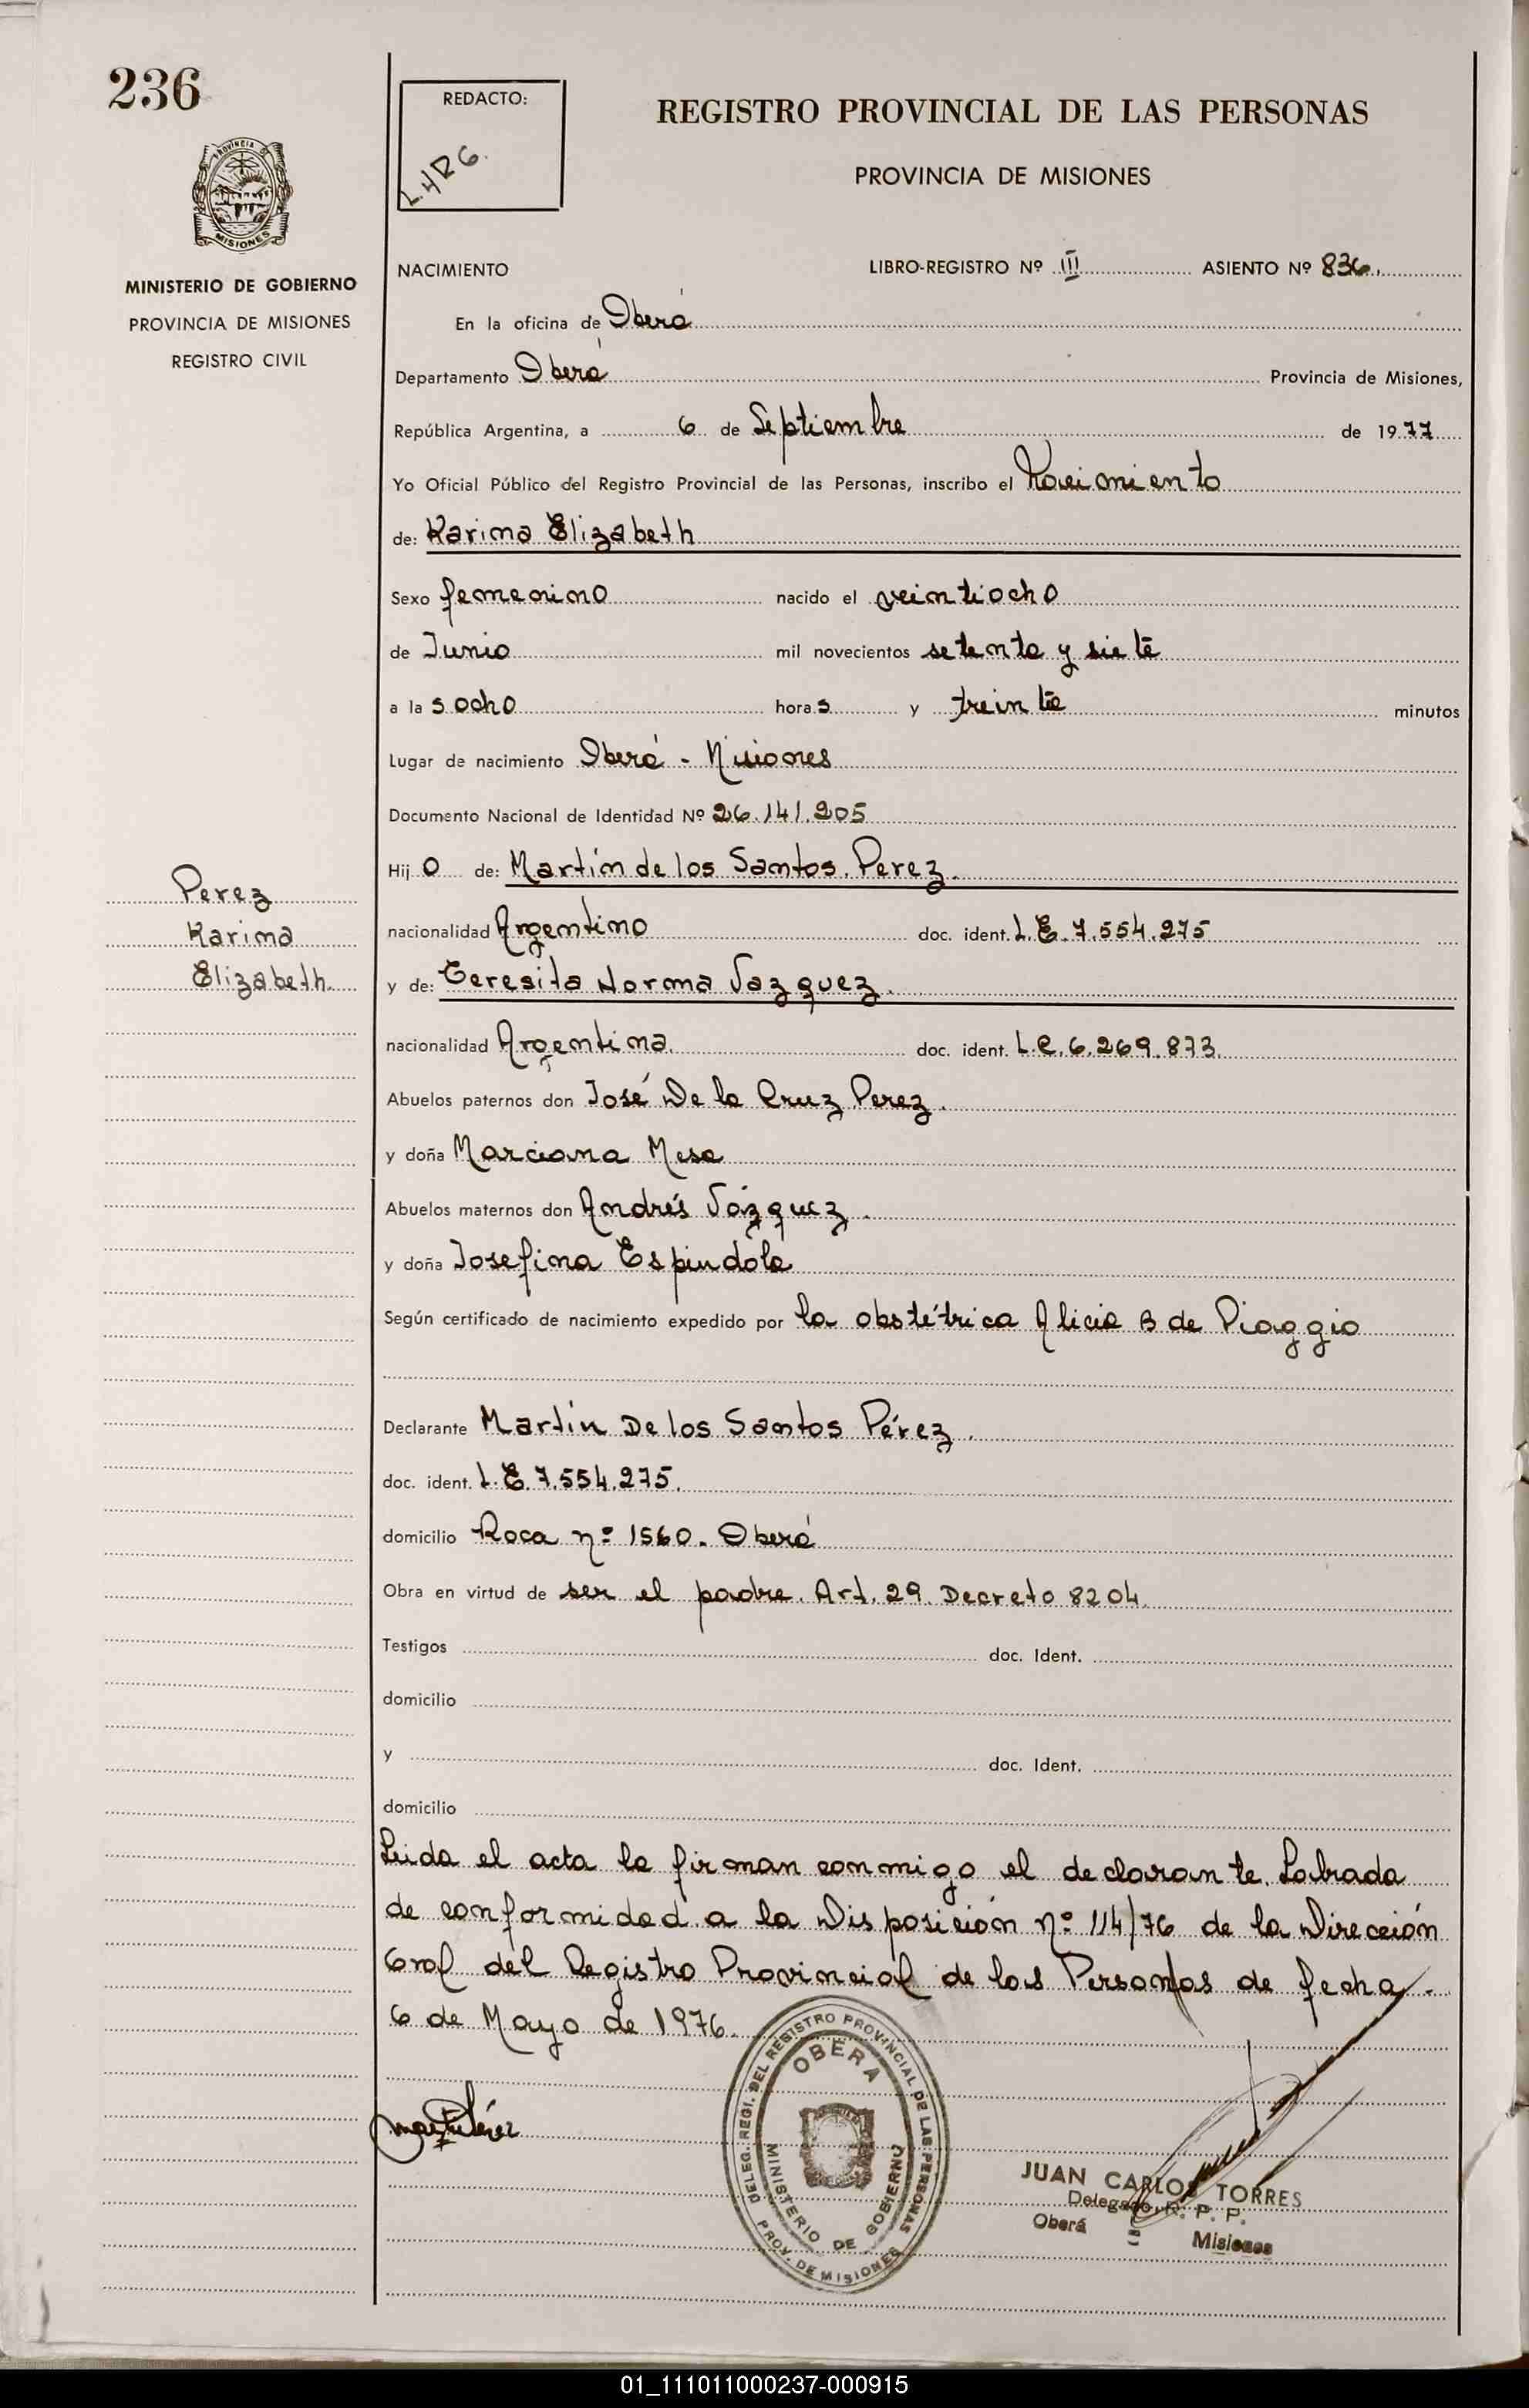 236
REDACTO:
REGISTRO PROVINCIAL DE LAS PERSONAS
PROVINCIA DE MISIONES
PROVINCIA
MISIONES
MINISTERIO DE GOBIERNO
PROVINCIA DE MISIONES
REGISTRO CIVIL
NACIMIENTO LIBRO-REGISTRO Nº III ASIENTO Nº 836.
En la oficina de Oberá
Departamento Oberá Provincia de Misiones,
República Argentina, a 6 de Septiembre de 1977
Yo Oficial Público del Registro Provincial de las Personas, inscribo el Nacimiento
de: Karina Elizabeth
Sexo femenino nacido el veintiocho
de Junio mil novecientos setenta y siete
a la s ocho hora s y treinta minutos
Lugar de nacimiento Oberá - Misiones
Documento Nacional de Identidad Nº 26.141.205
Hij o de: Martín de los Santos Perez.
Perez
Karina
Elizabeth.
nacionalidad Argentino doc. ident. L.E. 7.554.275
y de: Teresita Norma Vazquez.
nacionalidad Argentina. doc. ident. L.C. 6.269.873.
Abuelos paternos don José De la Cruz Perez.
y doña Marciana Mesa
Abuelos maternos don Andrés Vázquez.
y doña Josefina Espindola
Según certificado de nacimiento expedido por la obstétrica Alicia B de Piaggio
Declarante Martín De los Santos Pérez.
doc. ident. L.E. 7.554.275.
domicilio Roca nº 1560. Oberá
Obra en virtud de ser el padre. Art. 29. Decreto 8204.
Testigos doc. Ident.
domicilio
y doc. Ident.
domicilio
Leida el acta la firman conmigo el declarante. Labrada
de conformidad a la Disposición nº 114/76 de la Dirección
Gral del Registro Provincial de las Personas de fecha
6 de Mayo de 1976.
DELEG. REGI. DEL REGISTRO PROVINCIAL DE LAS PERSONAS
OBERA
MINISTERIO DE GOBIERNO
PROV. DE MISIONES
JUAN CARLOS TORRES
Delegado R. P. P.
Oberá = Misiones
01_111011000237-000915